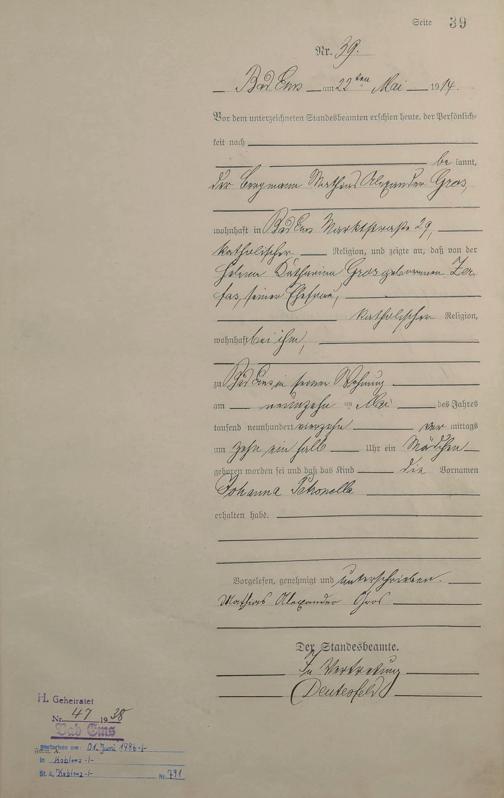 Seite 39
Nr. 39.
Bad Ems am 22ten Mai 1914.
Vor dem unterzeichneten Standesbeamten erschien heute, der Persönlich-
keit nach
be kannt,
der Bergmann Mathias Alexander Gros,
wohnhaft in Bad Ems Marktstraße 29,
katholischer Religion, und zeigte an, daß von der
Helena Katharina Gros geborenen Zer-
fas, seiner Ehefrau,
katholischer Religion,
wohnhaft bei ihm,
zu Bad Ems in seiner Wohnung
am neunzehn ten Mai des Jahres
tausend neunhundert vierzehn vor mittags
um zehn ein halb Uhr ein Mädchen
geboren worden sei und daß das Kind die Vornamen
Johanna Petronella
erhalten habe.
Vorgelesen, genehmigt und unterschrieben.
Mathias Alexander Gros
Der Standesbeamte.
In Vertretung
H. Geheiratet
Nr. 47 1938
Bad Ems
gestorben am: 01. Juni 1986 -/-
in Koblenz -/-
St. A. Koblenz -/- Nr. 791